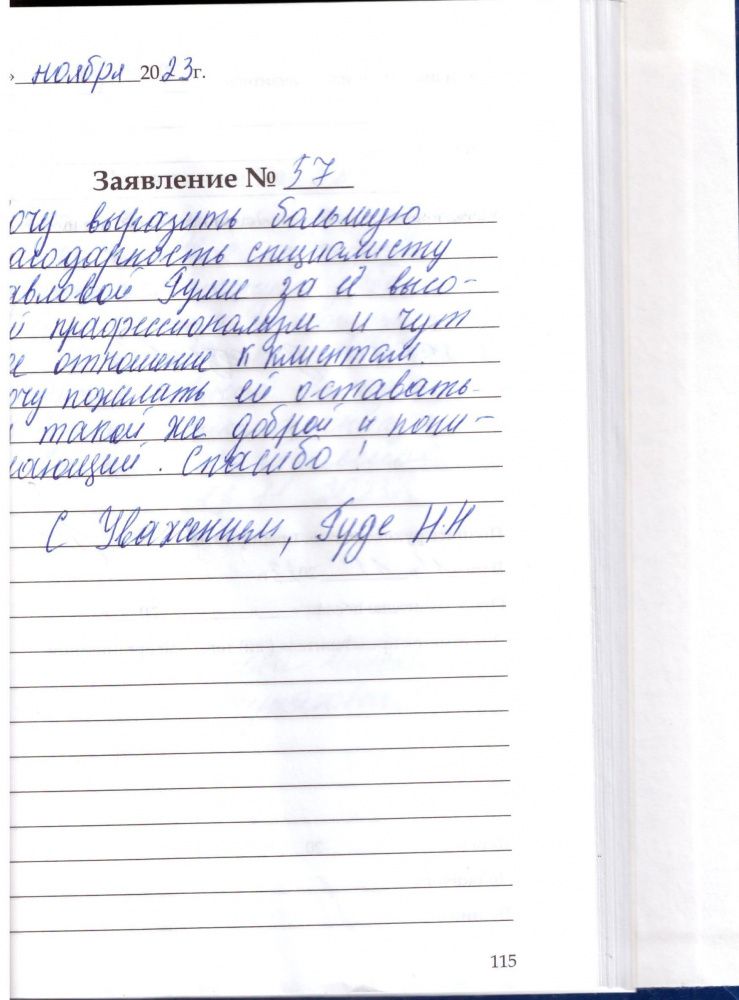 » ноября 2023г.
Заявление № 57
очу выразить большую
агодарность специалисту
авловой Гулие за её высо-
й профессионализм и чут
ое отношение к клиентам.
очу пожелать ей оставать-
такой же доброй и пони-
мающий. Спасибо!
С Уважением, Гуде Н.Н
115